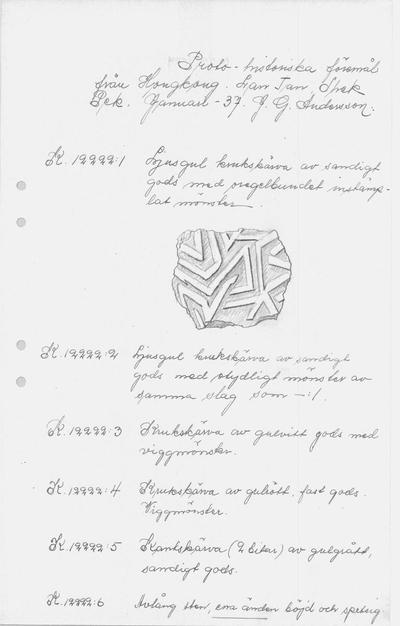 Proto-historiska föremål
från Hongkong. San Tan, Shek
Pek. Januari -37. J. G. Andersson.
K. 12222:1 Ljusgul krukskärva av sandigt
gods med oregelbundet instämp-
lat mönster.
K. 12222:2 Ljusgul krukskärva av sandigt
gods med otydligt mönster av
samma slag som —:1.
K. 12222:3 Krukskärva av gulvitt gods med
viggmönster.
K. 12222:4 Krukskärva av gulrött, fast gods.
Viggmönster.
K. 12222:5 Kantskärva (2 bitar) av gulgrått,
sandigt gods.
K. 12222:6 Avlång sten, ena änden böjd och spetsig.